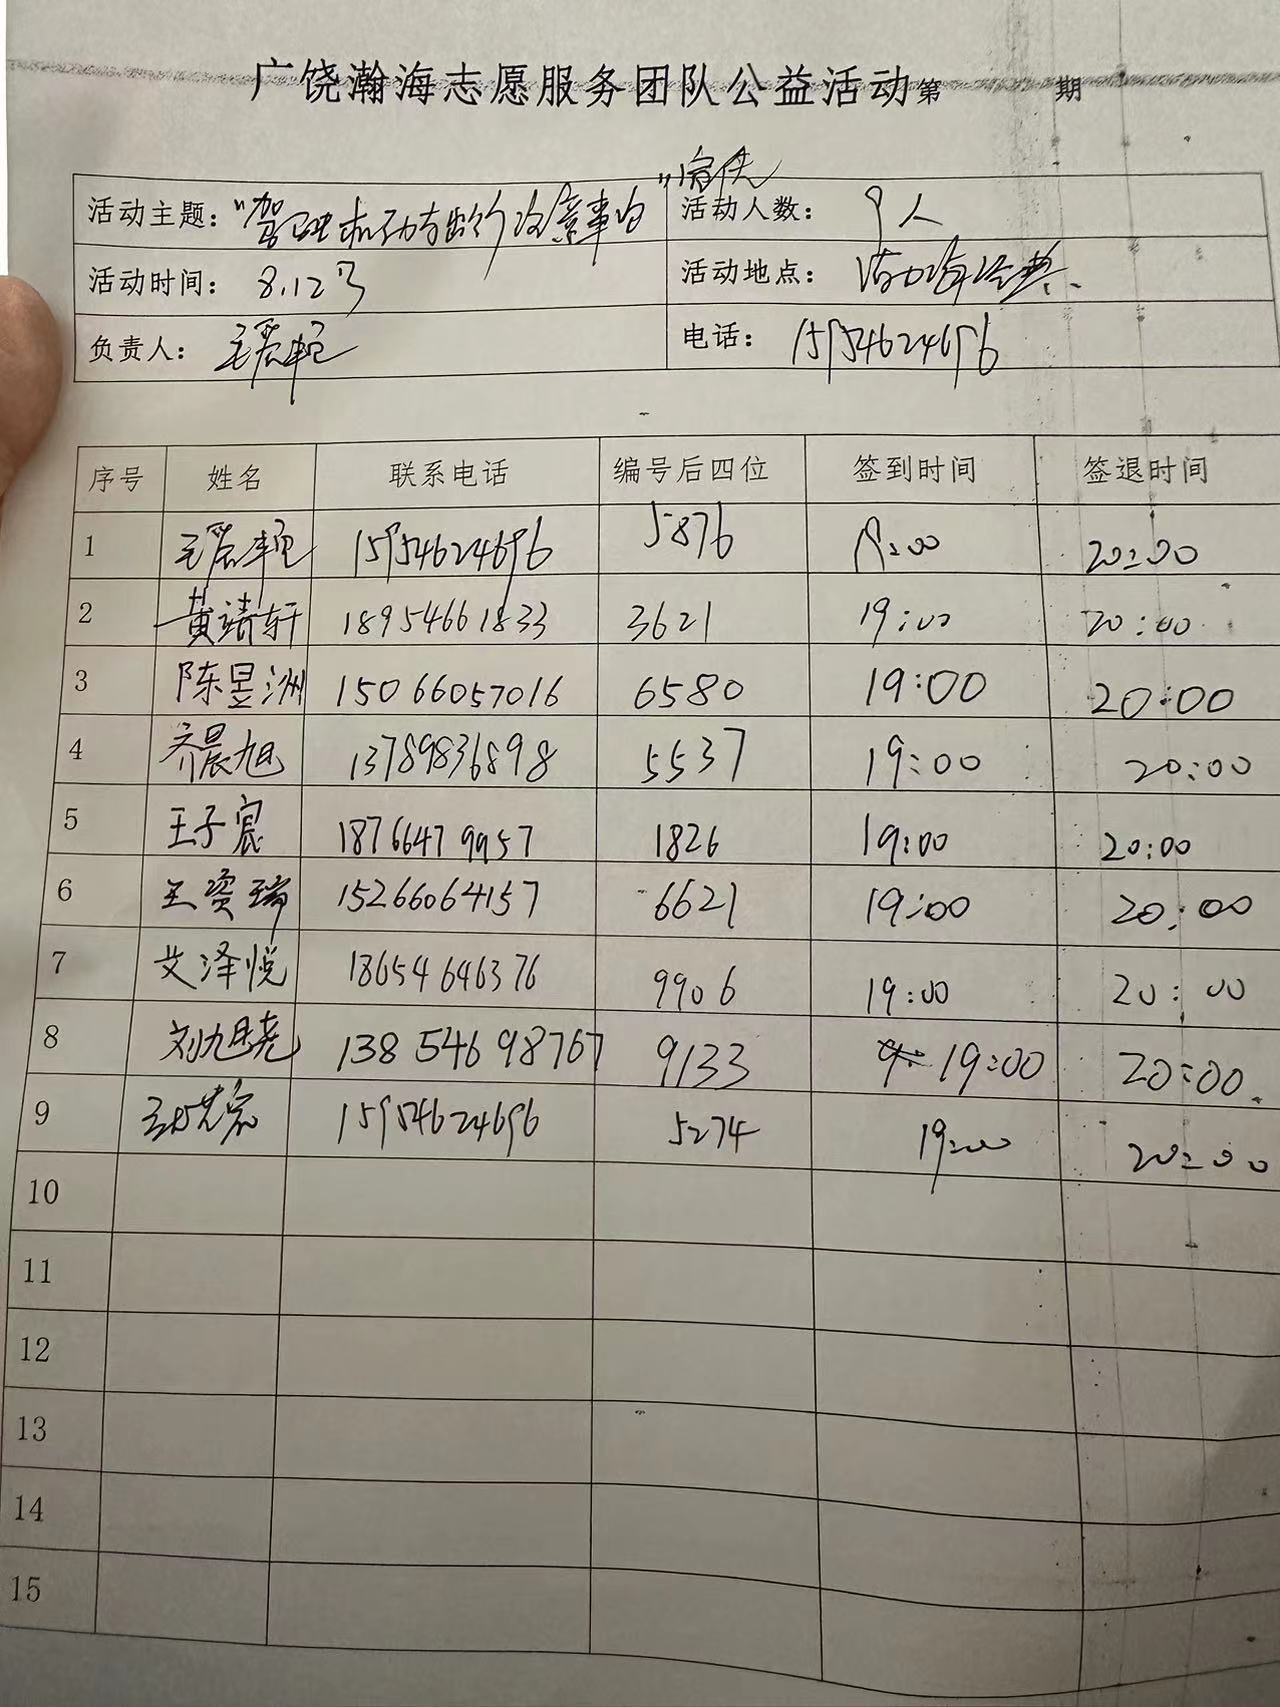 广饶瀚海志愿服务团队公益活动第 期
活动主题：“驾驶机动车的注意事项”宣传 活动人数： 9人
活动时间： 8.12号 活动地点：
负责人： 电话： 15954624696
序号 姓名 联系电话 编号后四位 签到时间 签退时间
1 15954624696 5876 19:00 20:00
2 黄靖轩 18954661833 3621 19:00 20:00
3 陈昱洲 15066057016 6580 19:00 20:00
4 齐晨旭 13789836898 5537 19:00 20:00
5 王子宸 18766479957 1826 19:00 20:00
6 王奕瑞 15266064157 6621 19:00 20:00
7 艾泽悦 18654646376 9906 19:00 20:00
8 刘旭尧 13854698767 9133 19:00 20:00.
9 15954624696 5274 19:00 20:00
10
11
12
13
14
15